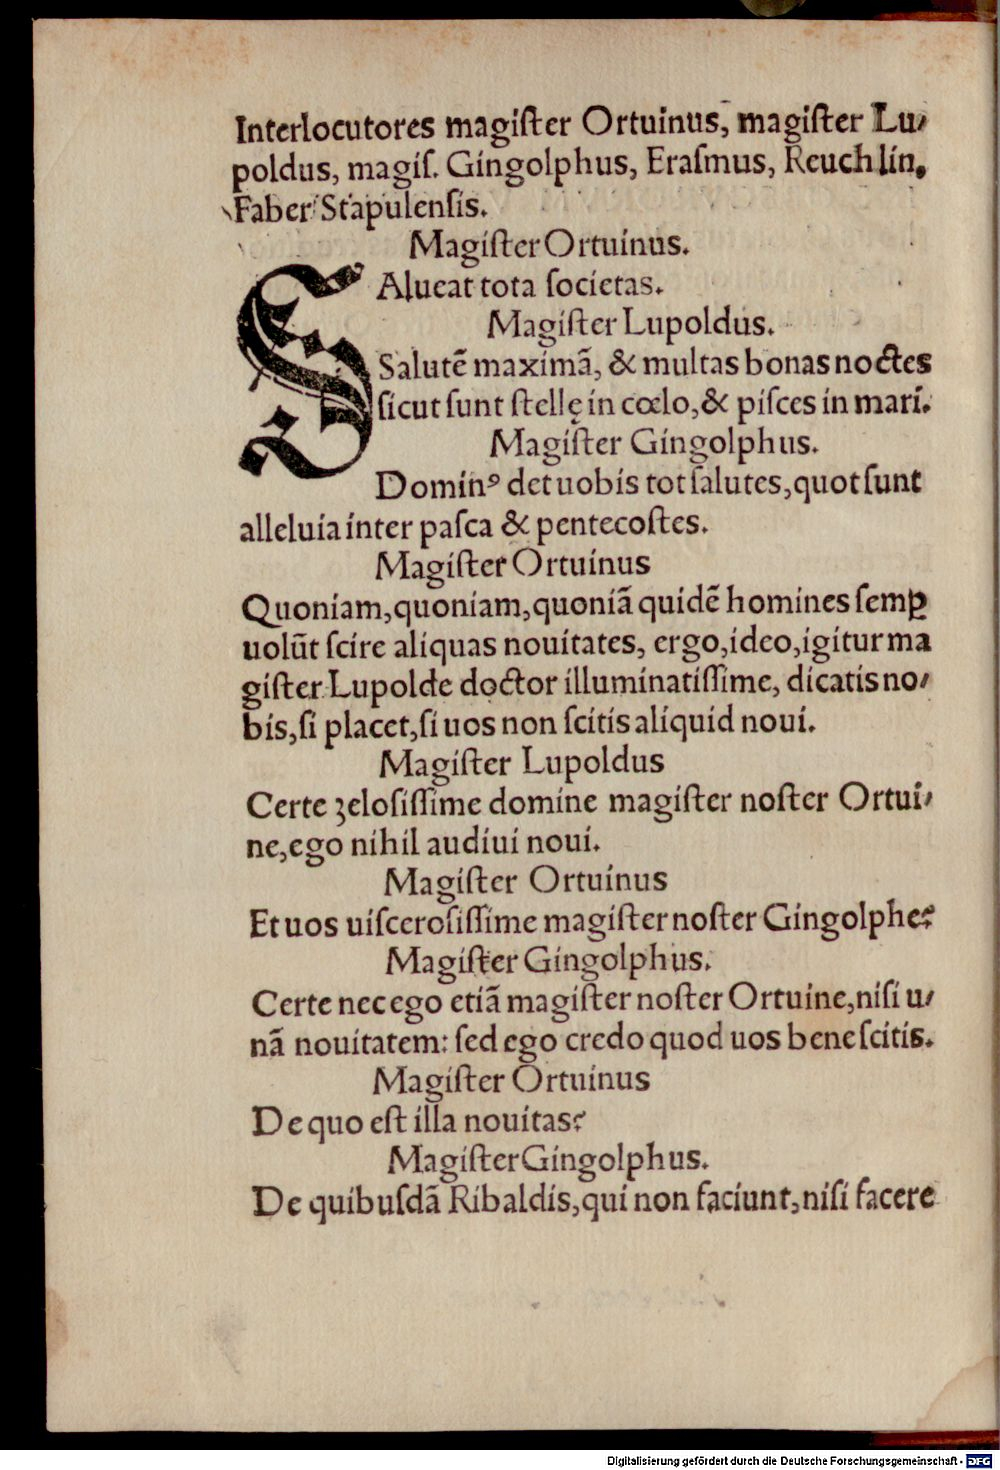 Interlocutores magiſter Ortuinus, magiſter Lu⸗
poldus, magiſ. Gingolphus, Eraſmus, Reuchlin,
Faber Stapulenſis.
Magiſter Ortuinus.
SAlueat tota ſocietas.
Magiſter Lupoldus.
Salutē maximā, & multas bonas noctes
ſicut ſunt ſtellę in cœlo, & piſces in mari.
Magiſter Gingolphus.
Dominꝰ det uobis tot ſalutes, quot ſunt
alleluia inter paſca & pentecoſtes.
Magiſter Ortuinus
Quoniam, quoniam, quoniā quidē homines ſemꝑ
uolūt ſcire aliquas nouitates, ergo, ideo, igitur ma
giſter Lupolde doctor illuminatiſſime, dicatis no⸗
bis, ſi placet, ſi uos non ſcitis aliquid noui.
Magiſter Lupoldus
Certe zeloſiſſime domine magiſter noſter Ortui⸗
ne, ego nihil audiui noui.
Magiſter Ortuinus
Et uos uiſceroſiſſime magiſter noſter Gingolphe?
Magiſter Gingolphus.
Certe nec ego etiā magiſter noſter Ortuine, niſi u⸗
nā nouitatem: ſed ego credo quod uos bene ſcitis.
Magiſter Ortuinus
De quo eſt illa nouitas?
Magiſter Gingolphus.
De quibuſdā Ribaldis, qui non faciunt, niſi facere
Digitalisierung gefördert durch die Deutsche Forschungsgemeinschaft - DFG